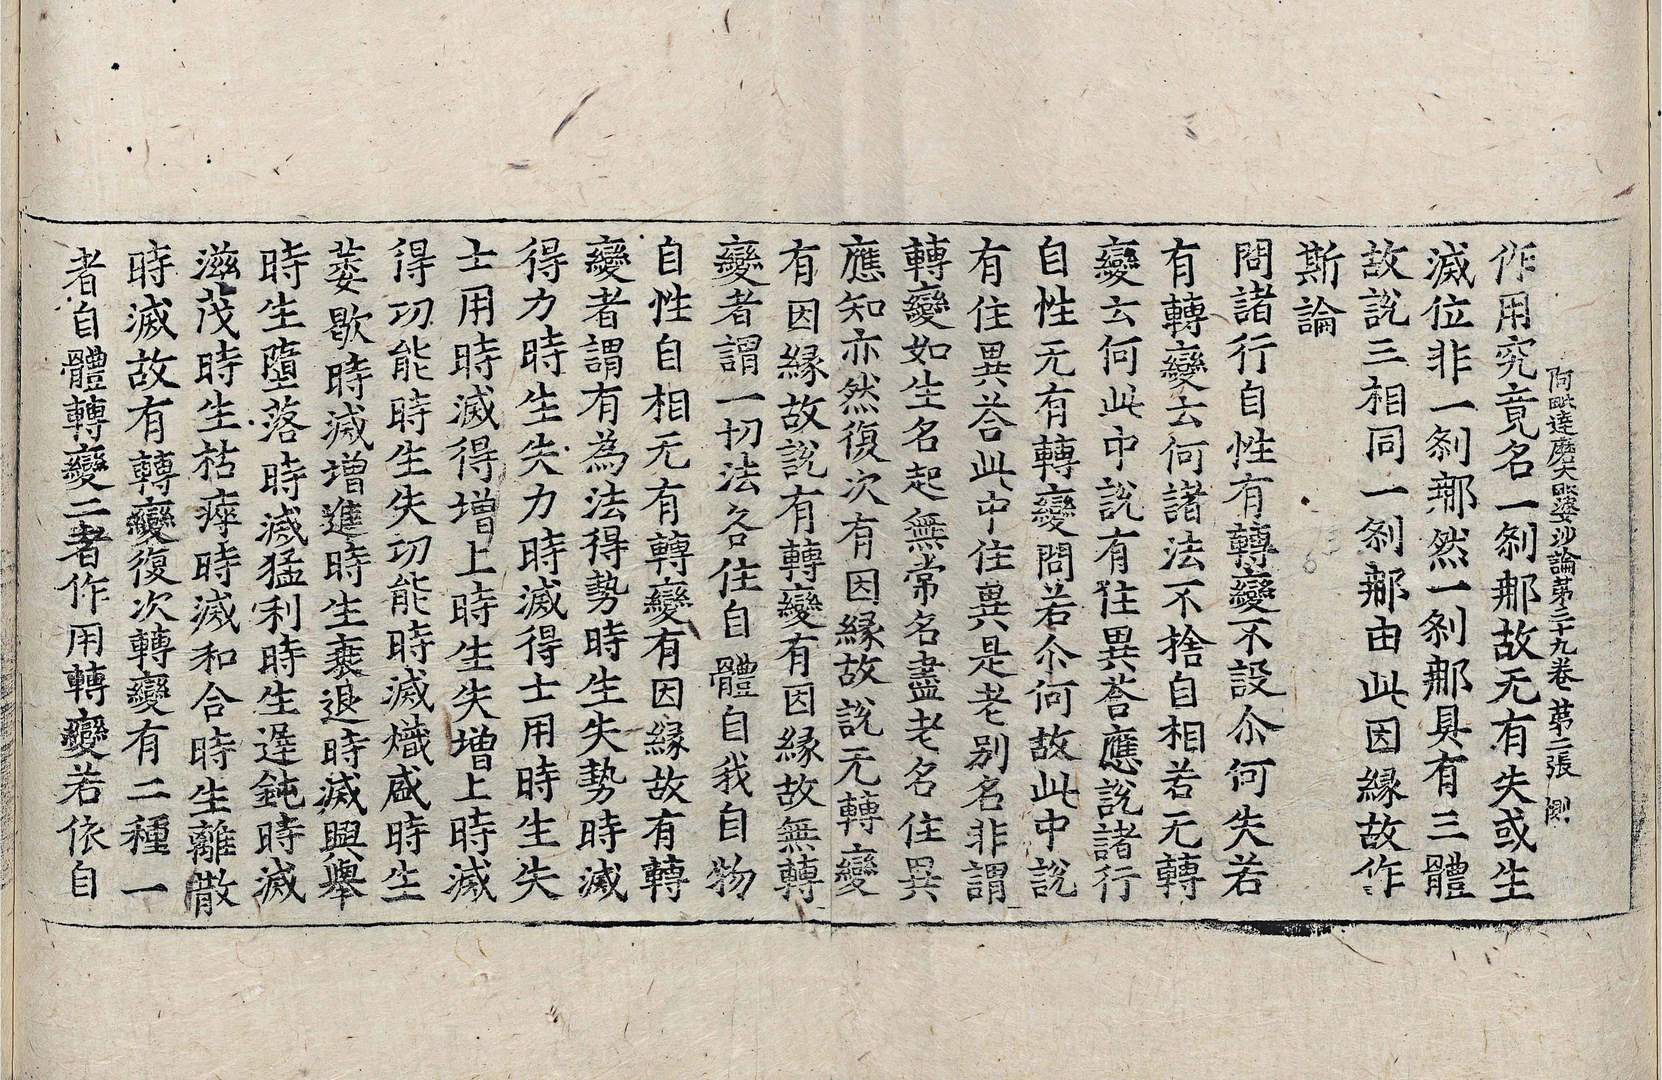 阿毗達磨大毗婆沙論第三十九卷 第二張 側
作用究竟名一剎那故无有失或生
滅位非一剎那然一剎那具有三體
故說三相同一剎那由此因緣故作
斯論
問諸行自性有轉變不設尒何失若
有轉變云何諸法不捨自相若无轉
變云何此中說有住異荅應說諸行
自性无有轉變問若尒何故此中說
有住異荅此中住異是老別名非謂
轉變如生名起無常名盡老名住異
應知亦然復次有因緣故說无轉變
有因緣故說有轉變有因緣故無轉
變者謂一切法各住自體自我自物
自性自相无有轉變有因緣故有轉
變者謂有為法得勢時生失勢時滅
得力時生失力時滅得士用時生失
士用時滅得增上時生失增上時滅
得功能時生失功能時滅熾盛時生
萎歇時滅增進時生衰退時滅興舉
時生墮落時滅猛利時生遲鈍時滅
滋茂時生枯瘁時滅和合時生離散
時滅故有轉變復次轉變有二種一
者自體轉變二者作用轉變若依自